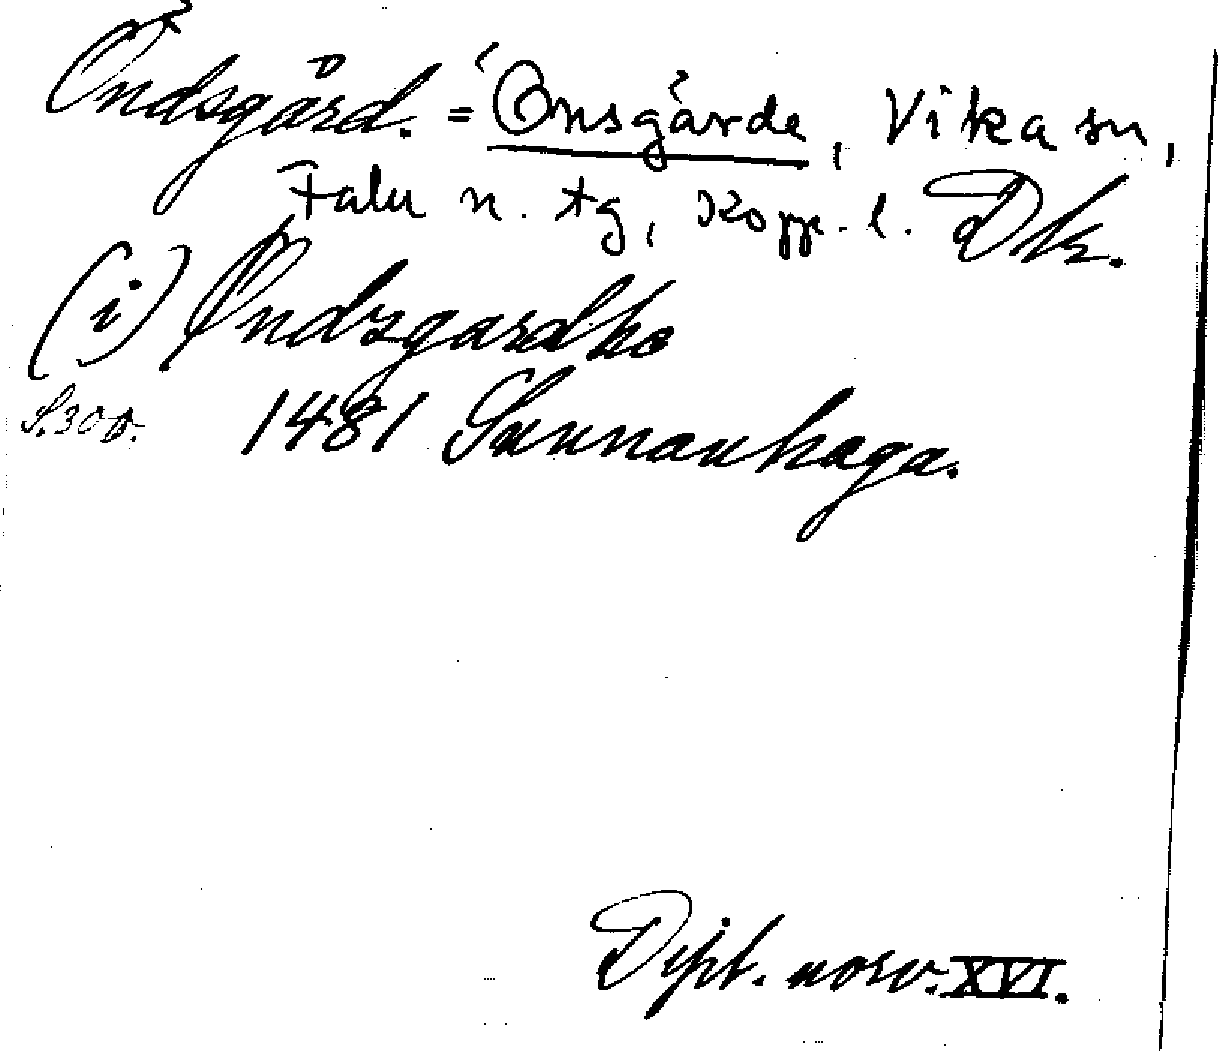 Öndsgård. = Önsgärde, Vika sn,
Falu n. tg, Kopp. l. Dk.
(i) Øndzgardho
S. 300.
1481 Sunnanhaga.
Dipl. norv. XVI.